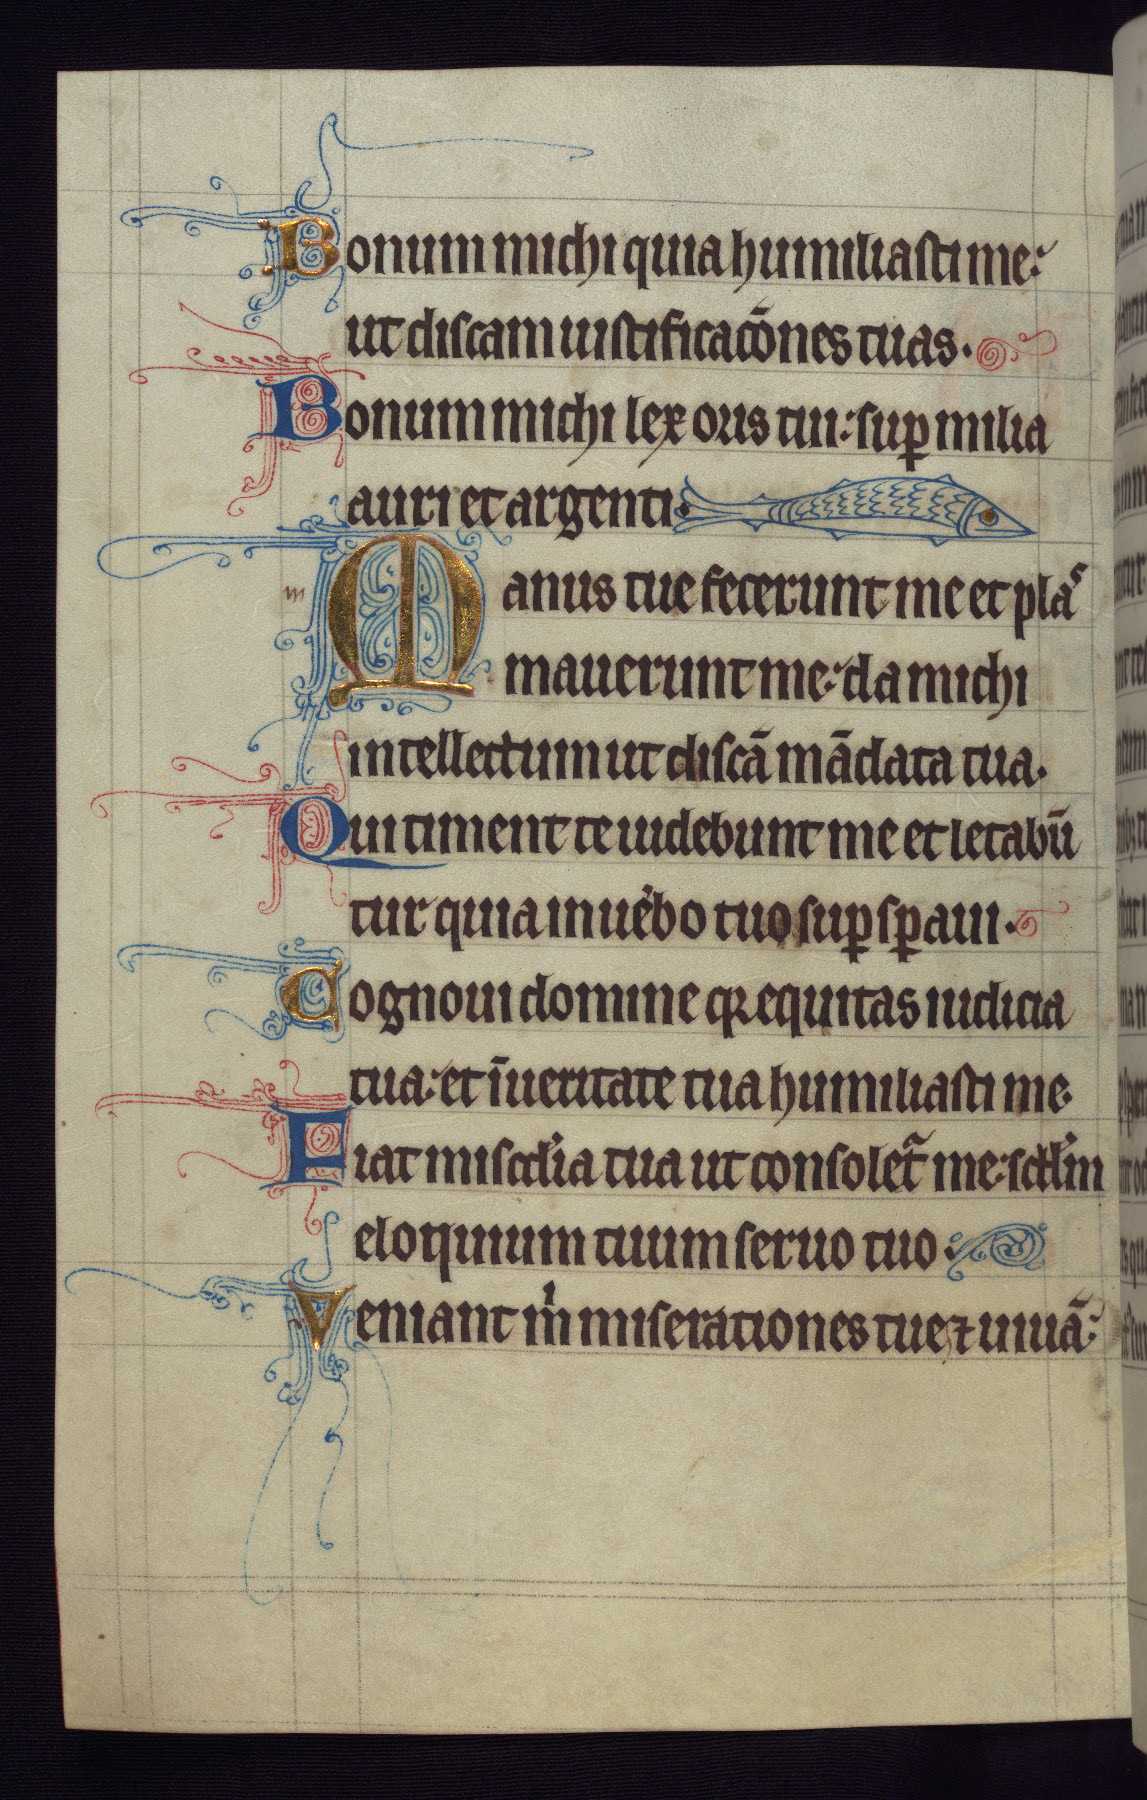 Bonum michi quia humiliasti me:
ut discam iustificacōnes tuas.
Bonum michi lex oris tui: suꝑ milia
auri et argenti.
m
Manus tue fecerunt me et plas
mauerunt me: da michi
intellectum ut discā mādata tua.
Qui timent te uidebunt me et letabū
tur quia in uẻbo tuo suꝑ sꝑaui.
Cognoui domine qꝛ equitas iudicia
tua: et ī ueritate tua humiliasti me.
Fiat miscd'ia tua ut consolet᷑ me: scd'm
eloquium tuum seruo tuo.
Veniant m̍ miserationes tue ⁊ uiuā: